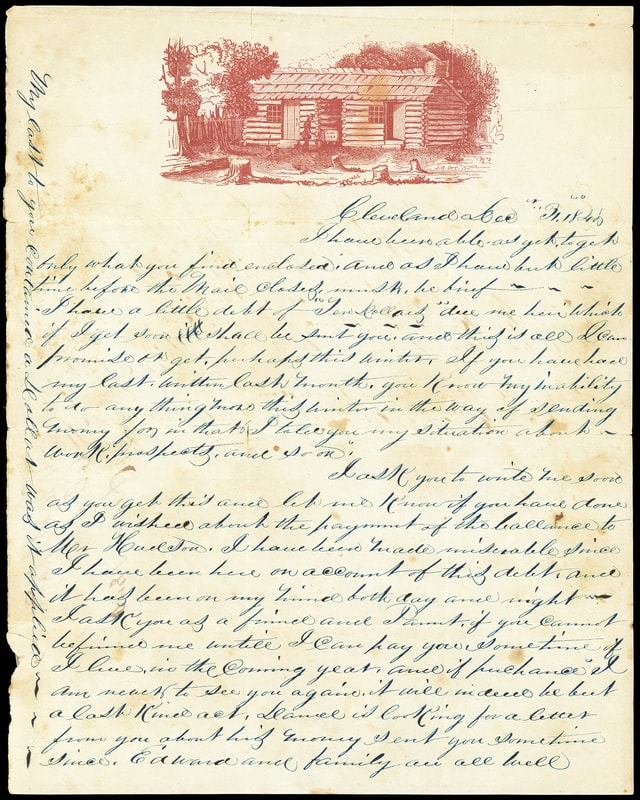 Cleveland Dec " 31. 1840
I have been able, as yet, to get
only what you find enclosed, and as I have but little
time before the Mail closes, must, be brief — — —
I have a little debt of "Ten dollars" due me here which
if I get soon it shall be sent you, and this is all I can
promise or get, perhaps this winter. If you have had
my last, written last month, you know my inability
to do any thing more this winter in the way of sending
money for, in that I told you my situation about —
work, prospects, and so on".
I ask you to write me soon
as you get this and let me know if you have done
as I wished about the payment of the ballance to
Mr Hudson. I have been made miserable since
I have been here on account of this debt, and
it has been on my mind both day and night —
I ask you as a friend and Parent, if you cannot
befriend me untill I can pay you sometime if
I live, in the coming year, and if perchance" I
am never to see you again, it will indeed be but
a last kind act, Daniel is looking for a letter
from you about his money sent you sometime
since. Edward and family are all well
My last to you contained a Dollar was it applied — — —